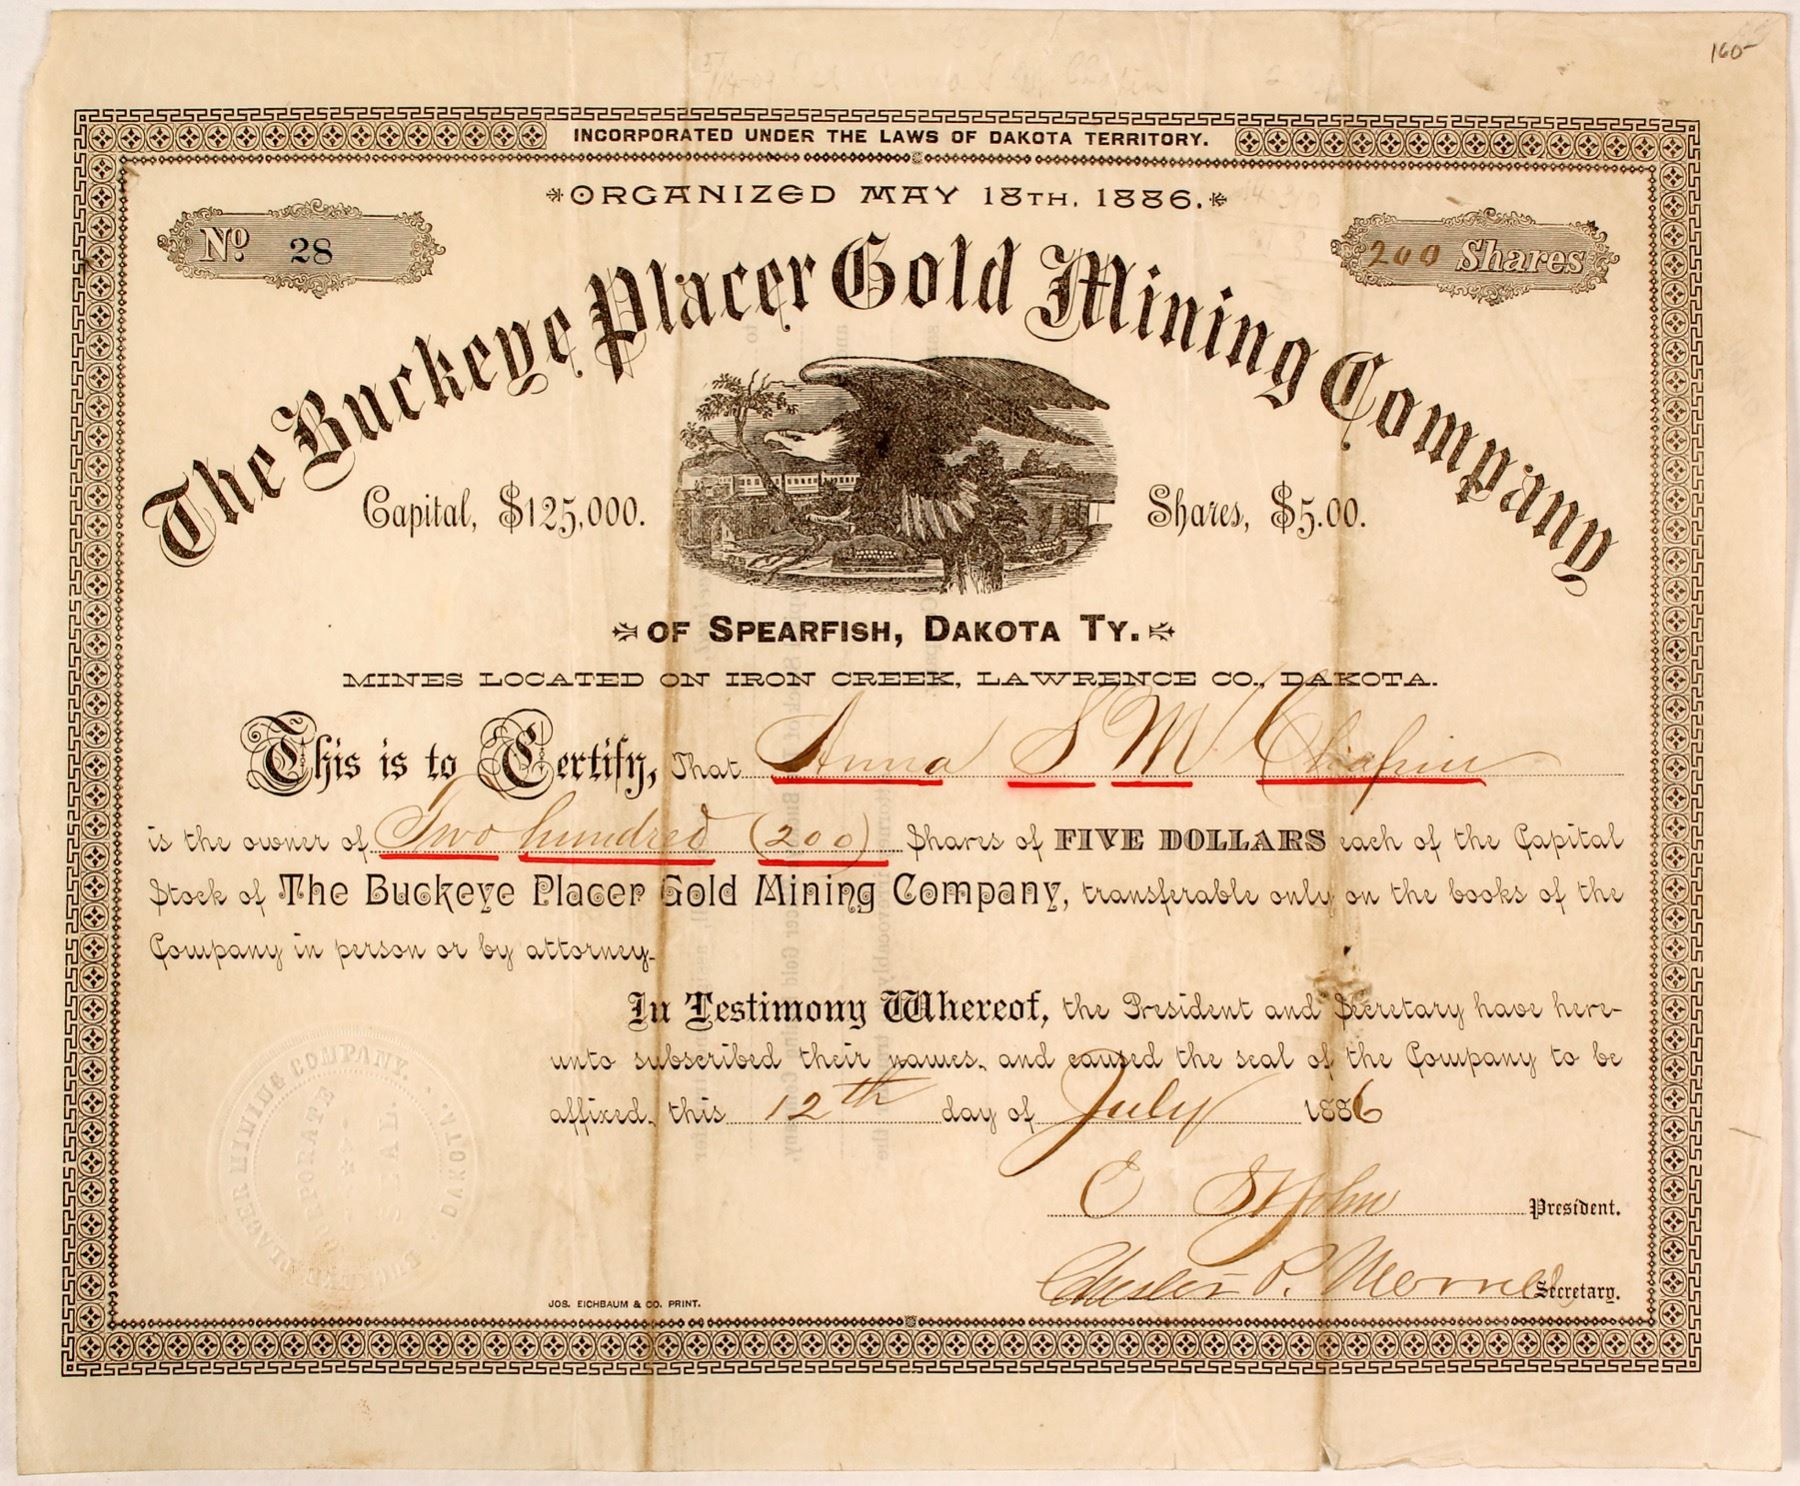 160-
INCORPORATED UNDER THE LAWS OF DAKOTA TERRITORY.
ORGANIZED MAY 18TH, 1886.
No. 28
200 Shares
The Buckeye Placer Gold Mining Company
Capital, $125,000.
Shares, $5.00.
OF SPEARFISH, DAKOTA TY.
MINES LOCATED ON IRON CREEK, LAWRENCE CO., DAKOTA.
This is to Certify, That Anna S M Chapin
is the owner of Two hundred (200) Shares of FIVE DOLLARS each of the Capital
Stock of The Buckeye Placer Gold Mining Company, transferable only on the books of the
Company in person or by attorney.
In Testimony Whereof, the President and Secretary have here-
unto subscribed their names, and caused the seal of the Company to be
affixed, this 12th day of July 1886
President.
Chester P. Merrill Secretary.
PLACER MINING COMPANY. DAKOTA.
JOS. EICHBAUM & CO. PRINT.